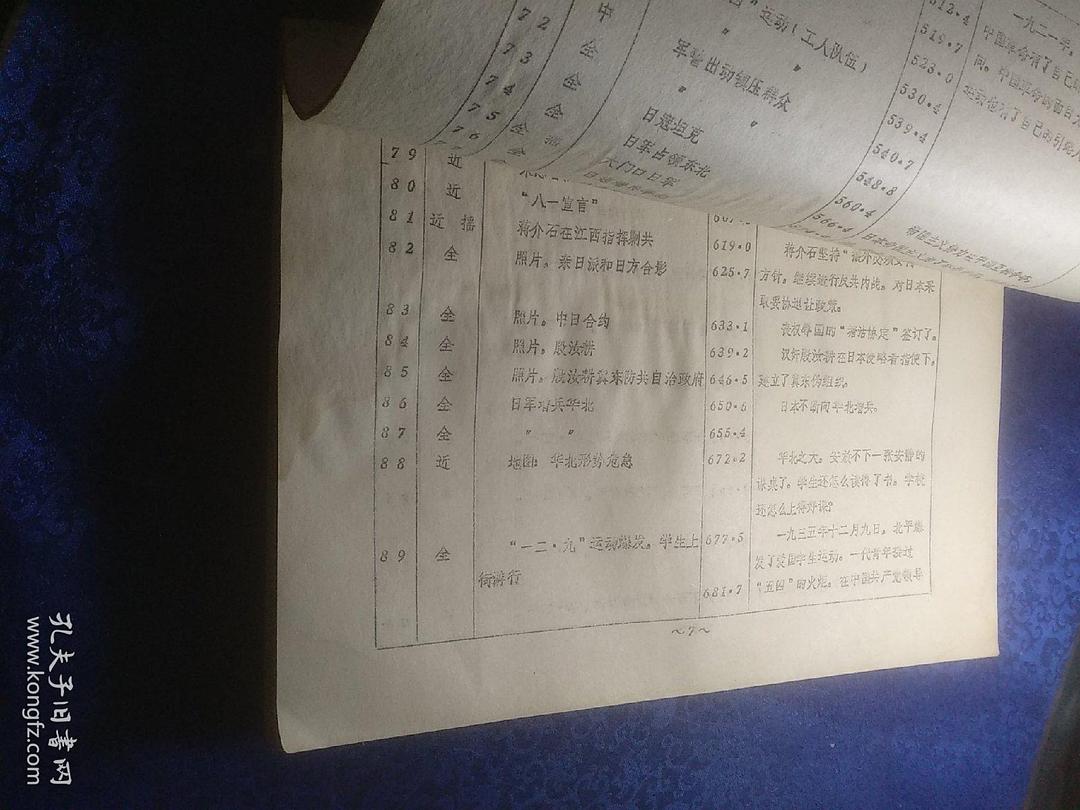 72 中 四"运动(工人队伍) 512.4
73 全 〃 〃 519.7
74 全 军警出动镇压群众 523.0
75 全 〃 〃 530.4
76 日寇坦克 539.4
日军占领东北 540.7
大门口日军 548.8
560.4
566.4
一九二一年,
中国革命有了自己的
问。中国革命的面目
运动也有了自己的引
79 近
80 近 "八一宣言"
81 近 摇 蒋介石在江西指挥剿共 619.0
82 全 照片。亲日派和日方合影 625.7
蒋介石坚持"攘外必须安内
方针。继续进行反共内战。对日本采
取妥协退让政策。
83 全 照片。中日合约 633.1 丧权辱国的"塘沽协定"签订了。
84 全 照片。殷汝耕 639.2 汉奸殷汝耕在日本侵略者指使下。
85 全 照片。殷汝耕冀东防共自治政府 646.5 建立了冀东伪组织。
86 全 日军增兵华北 650.6 日本不断向华北增兵。
87 全 〃 〃 655.4
88 近 地图:华北形势危急 672.2 华北之大。安放不下一张安静的
课桌了。学生还怎么读得了书。学校
还怎么上得好课?
89 全 "一二·九"运动爆发。学生上 677.5 一九三五年十二月九日。北平爆
街游行
发了爱国学生运动。一代青年接过
681.7 "五四"的火炬。在中国共产党领导
~7~
孔夫子旧书网
www.kongfz.com